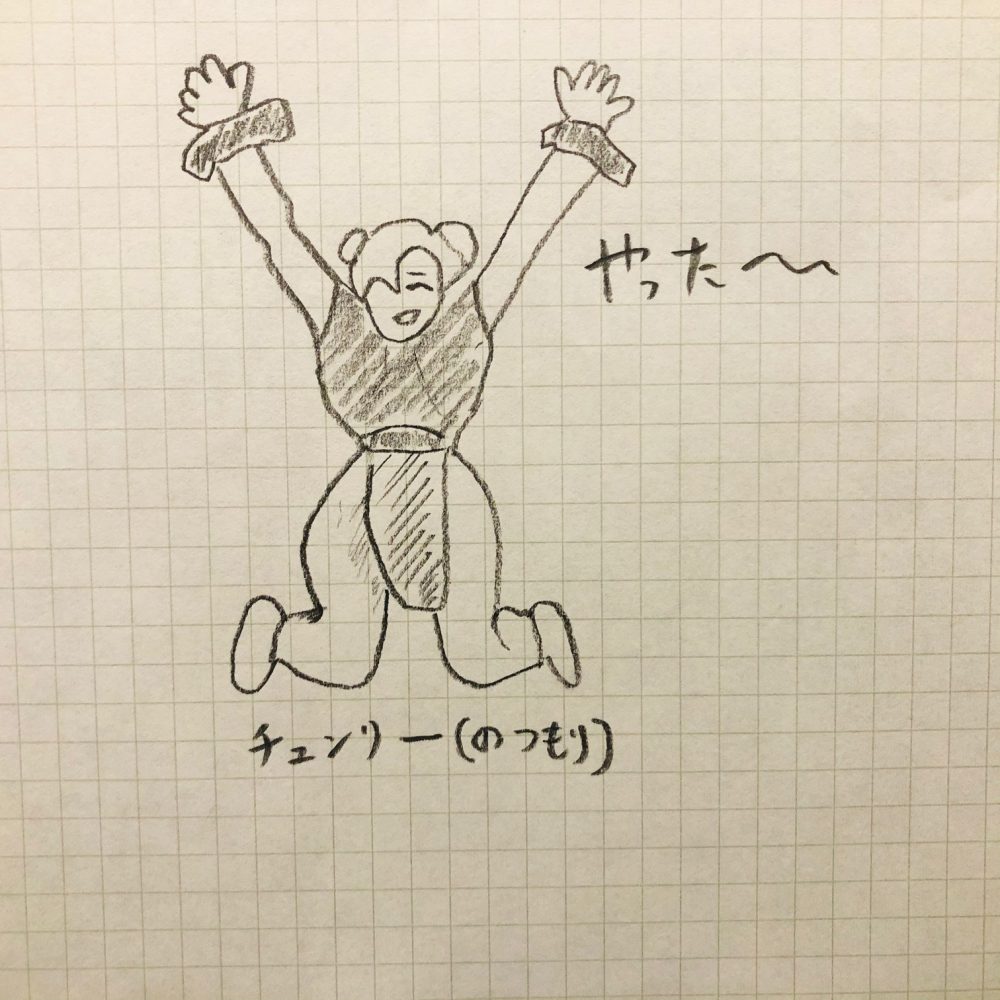 やった〜
チュンリー(のつもり)